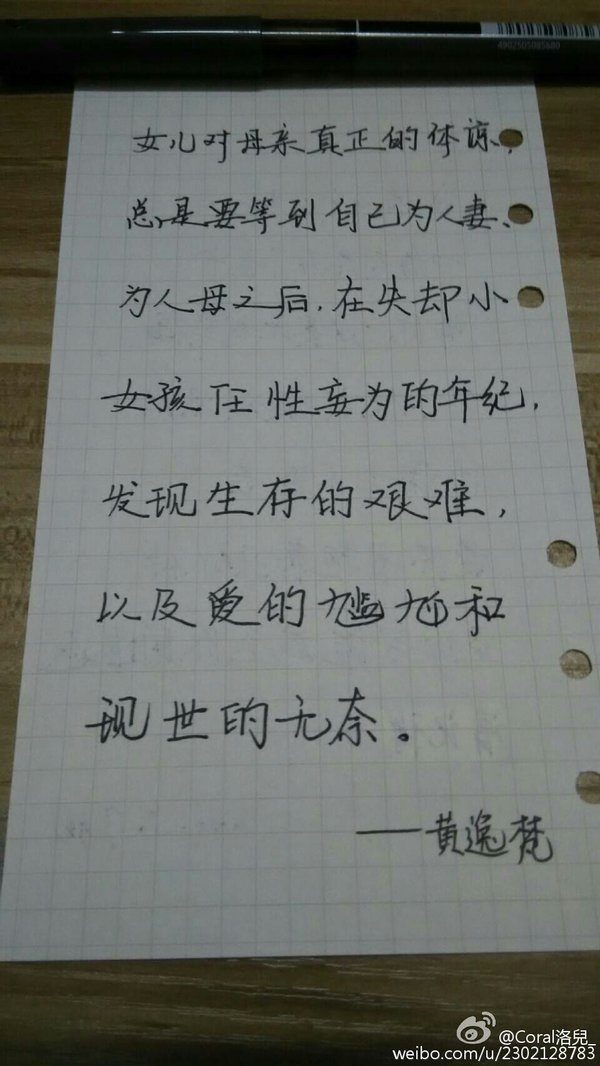 4902505085680
女儿对母亲真正的体谅,
总是要等到自己为人妻、
为人母之后,在失却小
女孩任性妄为的年纪,
发现生存的艰难,
以及爱的尴尬和
现世的无奈。
——黄逸梵
@Coral洛兒_
weibo.com/u/2302128783